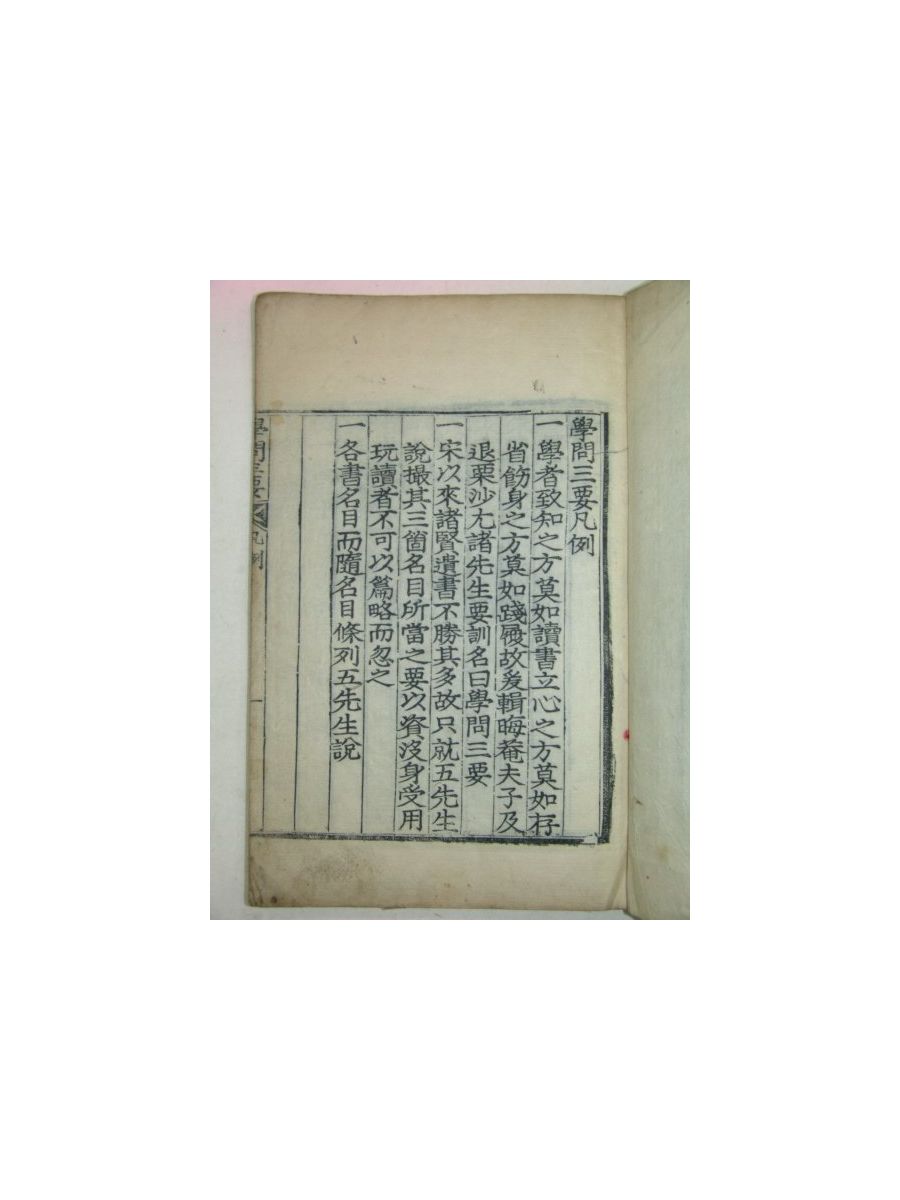 學問三要凡例
一學者致知之方莫如讀書立心之方莫如存
省飭身之方莫如踐履故爰輯晦菴夫子及
退栗沙尤諸先生要訓名曰學問三要
一宋以來諸賢遺書不勝其多故只就五先生
說撮其三箇名目所當之要以資沒身受用
玩讀者不可以篇略而忽之
一各書名目而隨名目條列五先生說
學問三要 凡例 一